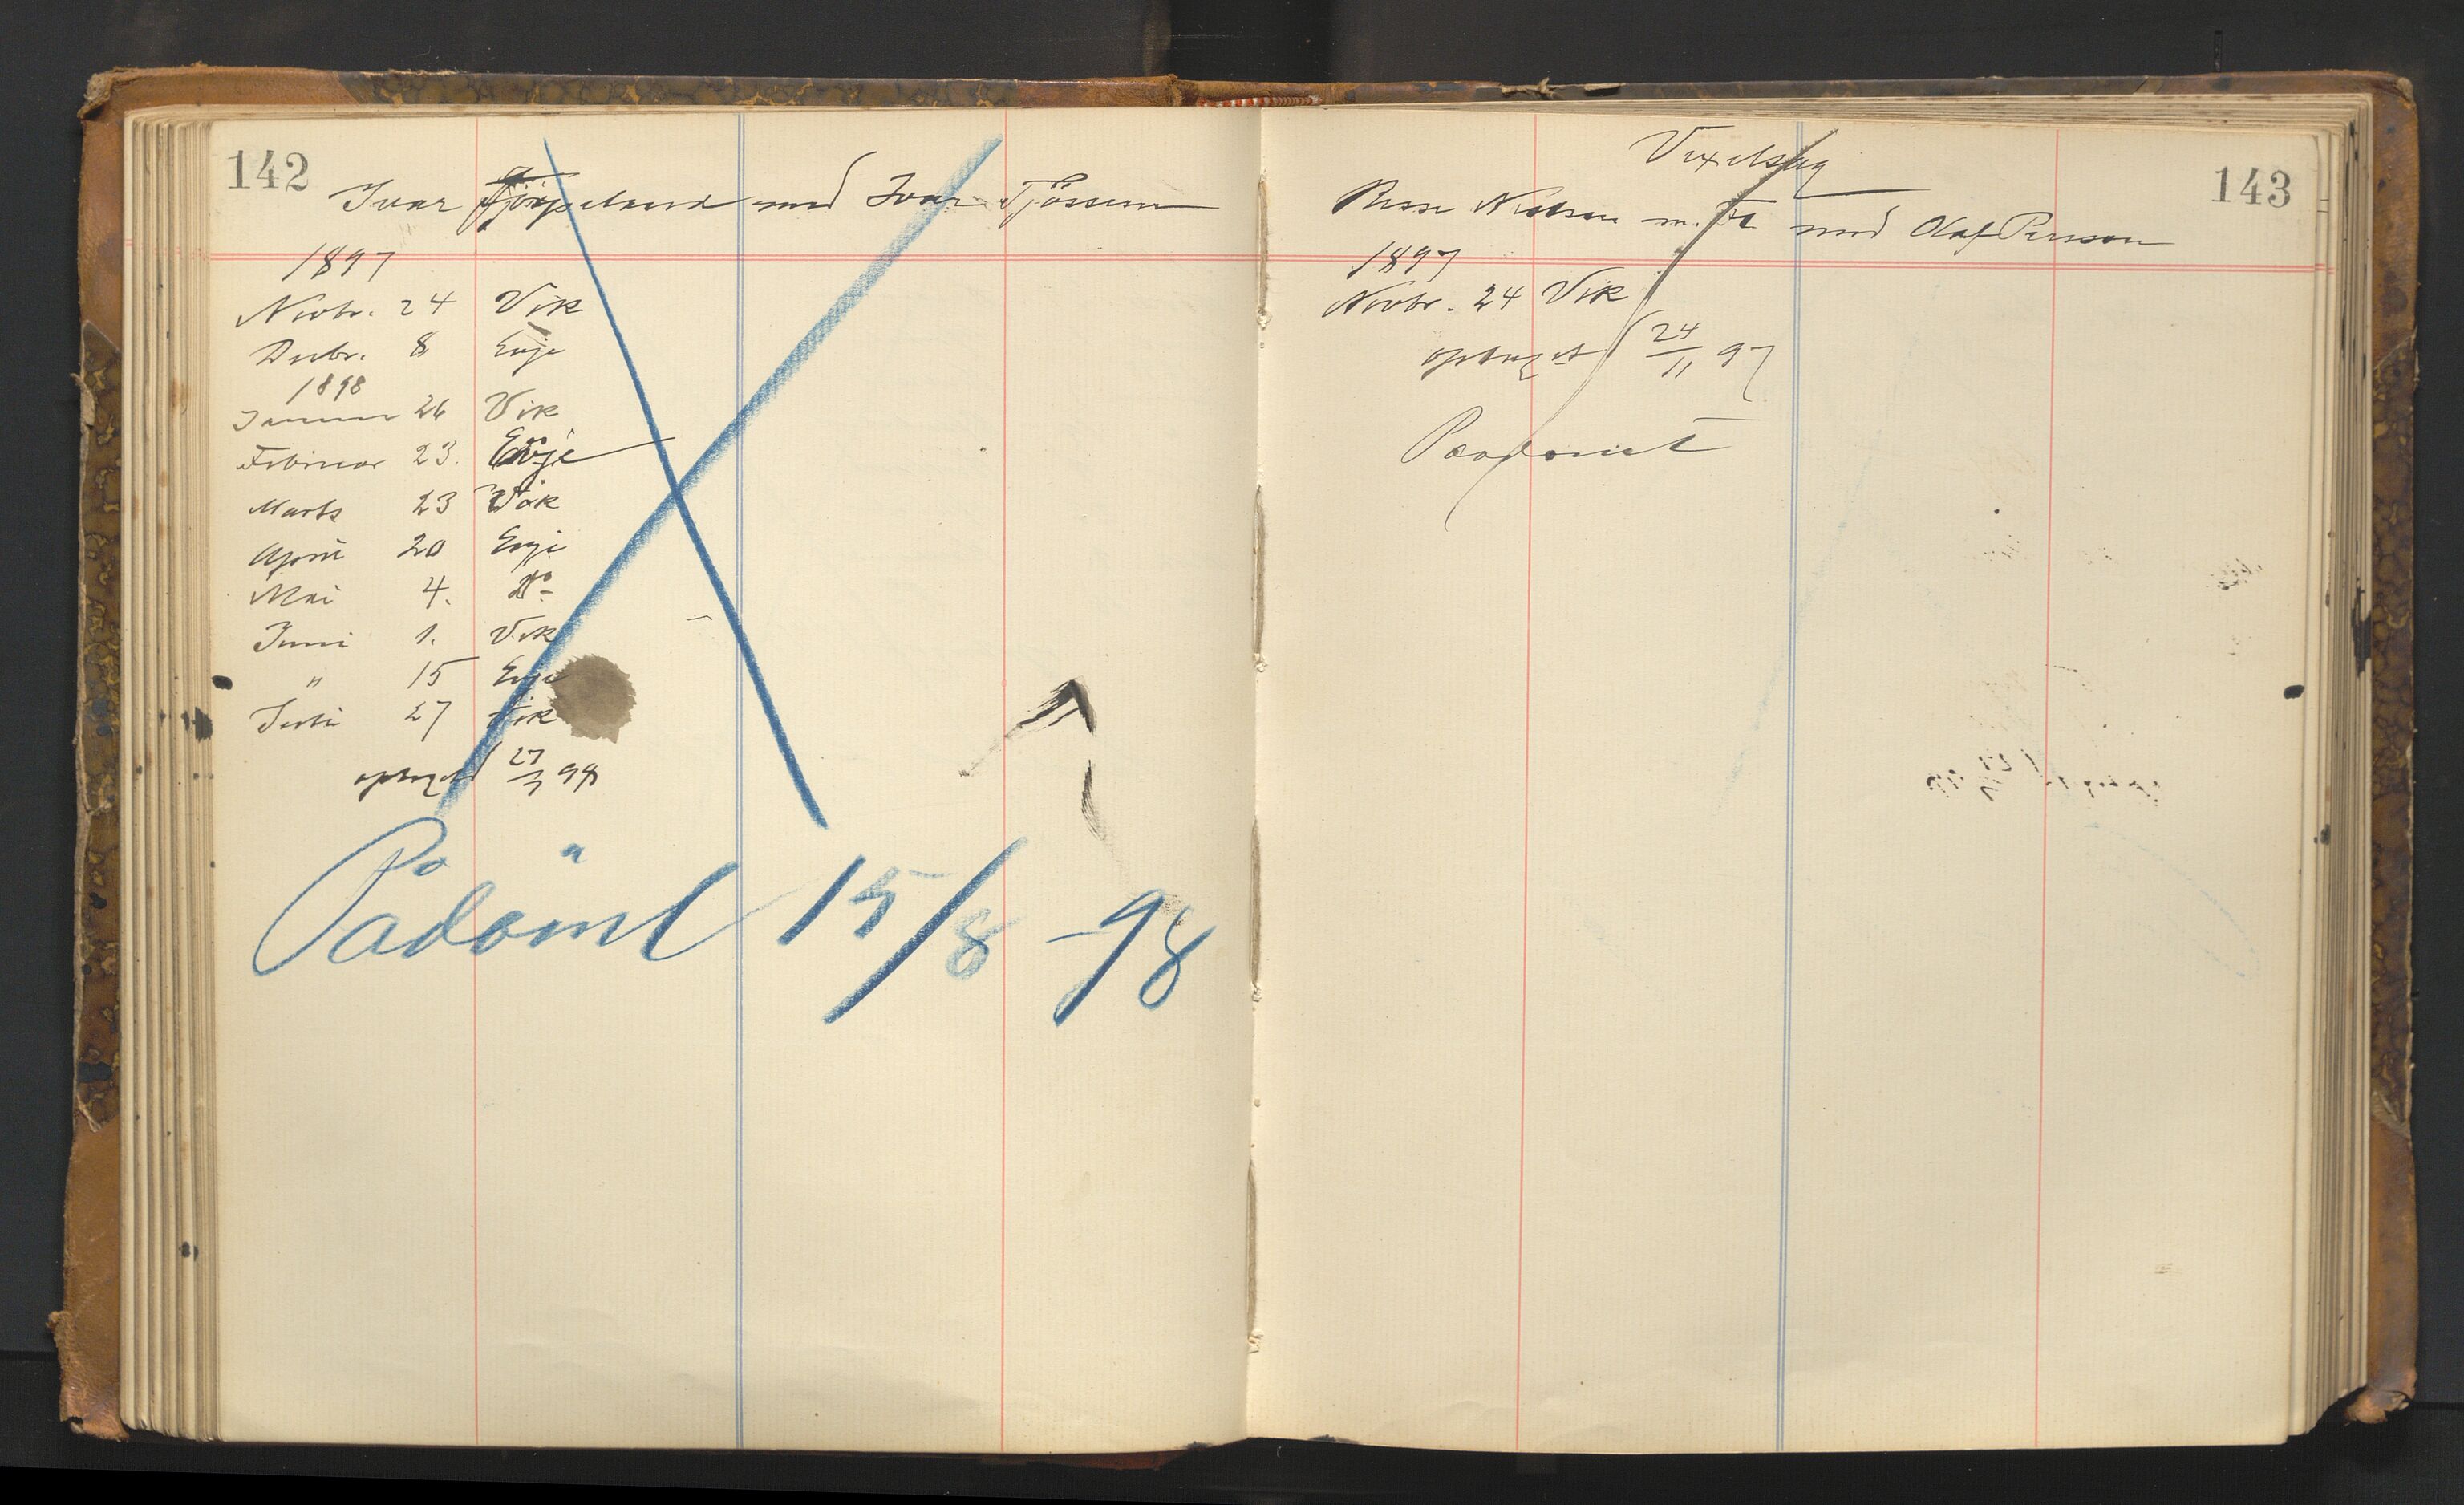 142
Ivar mod Ivar Tjössem
1897
Novbr. 24 Vik
Decbr. 8 Evje
1898
Januar 26 Vik
Februar 23. Evje
Marts 23 Vik
April 20 Evje
Mai 4. Do
Juni 1. Vik
" 15 Evje
Juli 27 Vik
optaget 27/7 98
Pådömt 15/8 -98
143
Vexelsag
Nielsen m. Fl mod Olaf Persson
1897
Novbr. 24 Vik
optaget 24/11 97
Paadömt